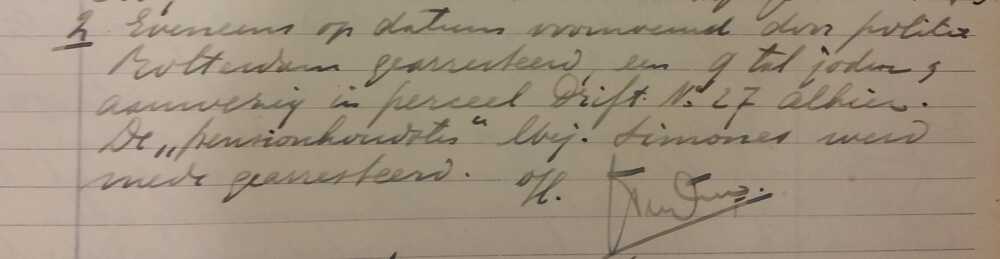 2 Eveneens op datum voornoemd door politie
Rotterdam gearresteerd, een 9 tal joden,
aanwezig in perceel Drift. No. 27 alhier.
De „pensionhoudster" Mej. Simones werd
mede gearresteerd.